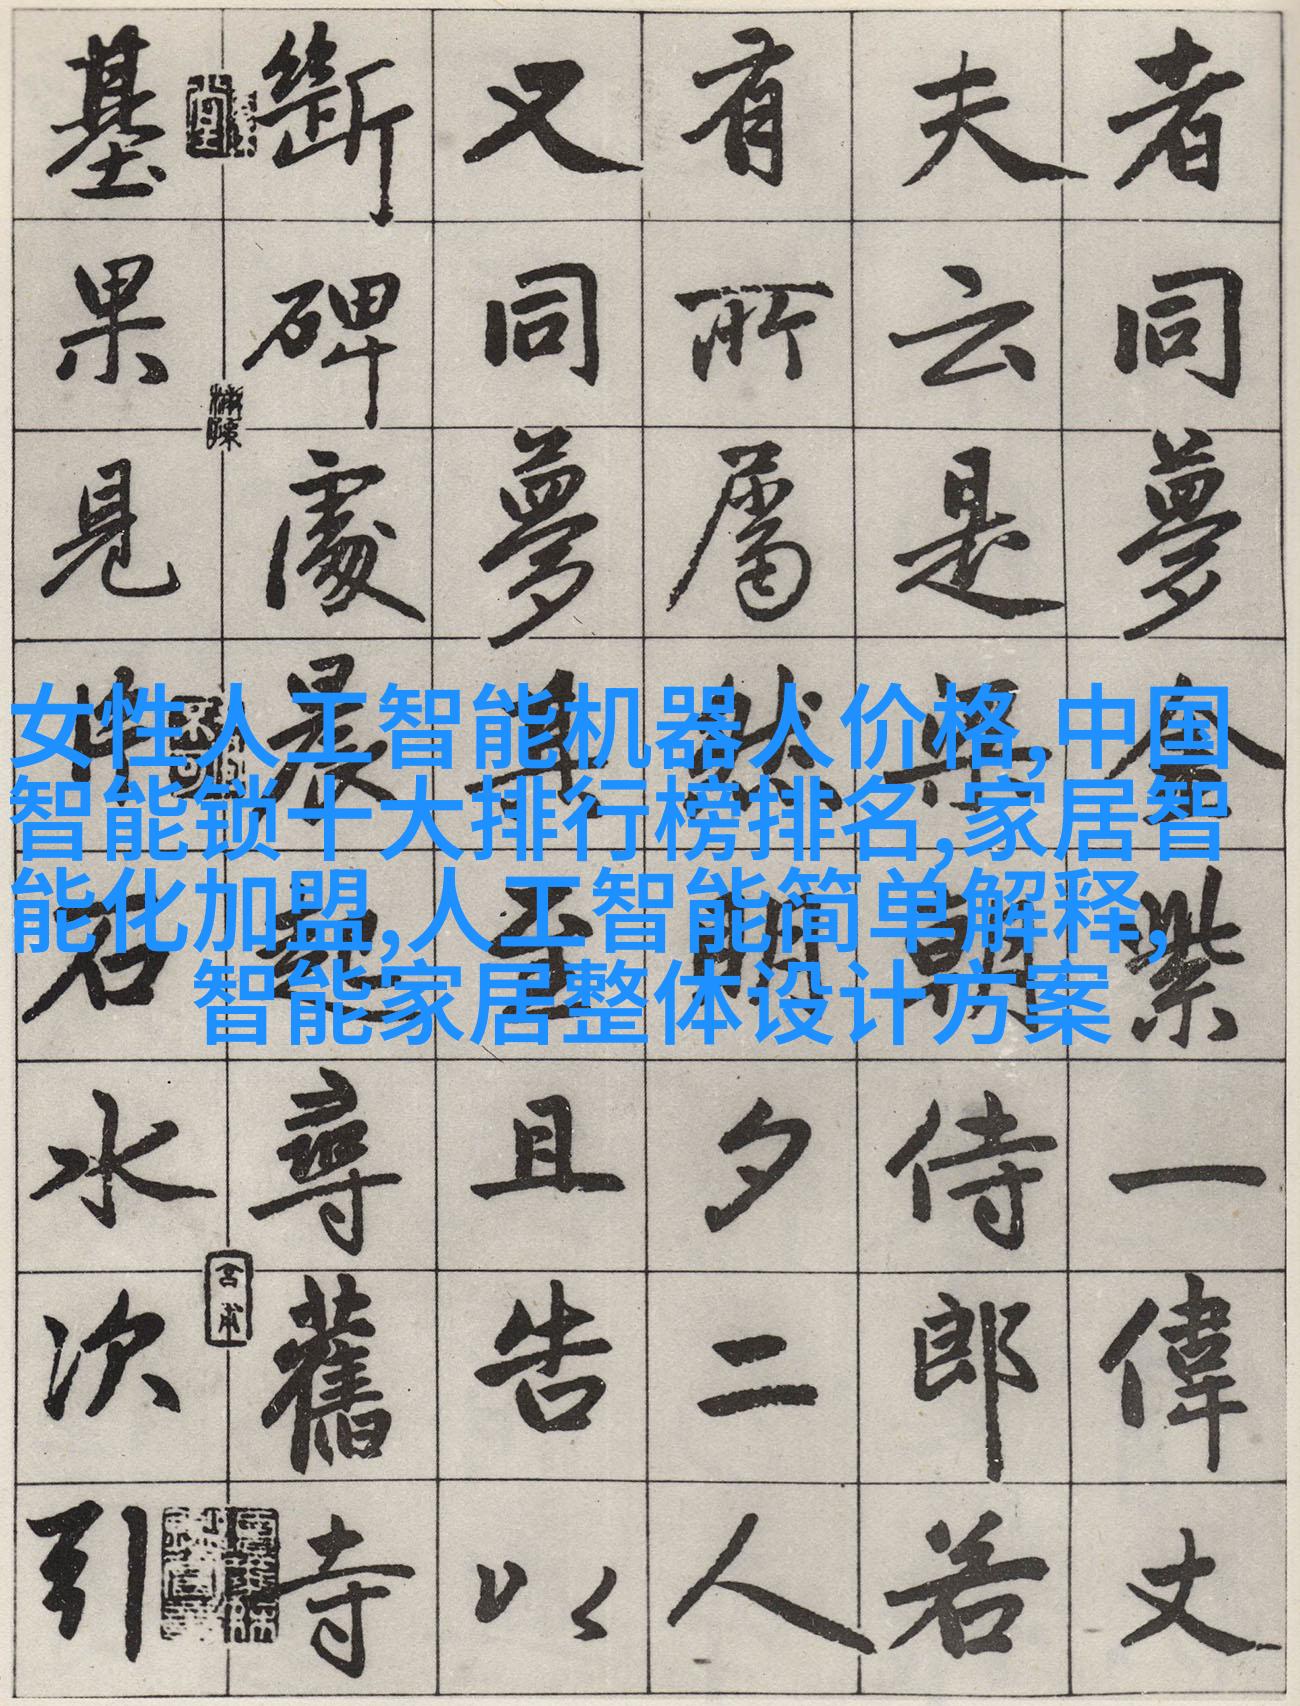 者同夢金紫一偉丈
夫云是朝侍郎若
有所屬然閱夕二人
又同夢其至且告以
斷碑處晨起尋舊寺
基果見片石水次引
女性人工智能机器人价格,中国
智能锁十大排行榜排名,家居智
能化加盟,人工智能简单解释,
智能家居整体设计方案